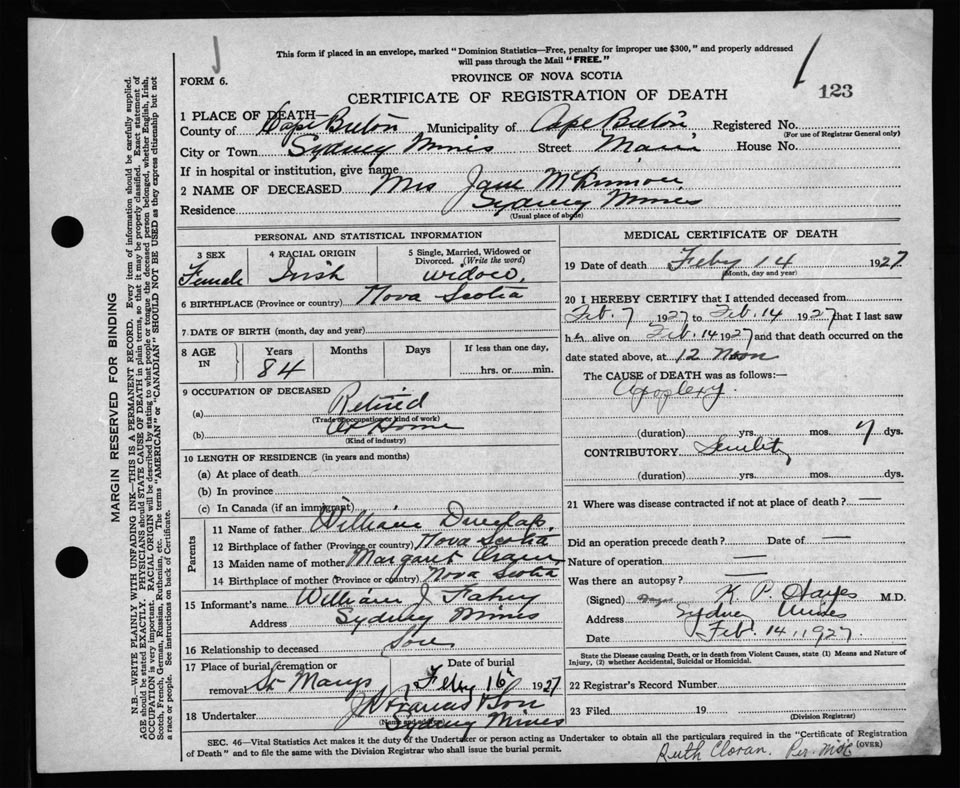 This form if placed in an envelope, marked "Dominion Statistics—Free, penalty for improper use $300," and properly addressed
will pass through the Mail "FREE."
FORM 6.
PROVINCE OF NOVA SCOTIA
123
CERTIFICATE OF REGISTRATION OF DEATH
1 PLACE OF DEATH
County of Cape Breton Municipality of Cape Breton Registered No.
(For use of Registrar General only)
City or Town Sydney Mines Street Main House No.
If in hospital or institution, give name
2 NAME OF DECEASED Mrs Jane McKinnon
Residence Sydney Mines
(Usual place of abode)
PERSONAL AND STATISTICAL INFORMATION
3 SEX Female
4 RACIAL ORIGIN Irish
5 Single, Married, Widowed or Divorced. (Write the word) widow
6 BIRTHPLACE (Province or country) Nova Scotia
7 DATE OF BIRTH (month, day and year)
8 AGE IN Years 84 Months Days If less than one day, hrs. or min.
9 OCCUPATION OF DECEASED
(a) Retired
(Trade occupation or kind of work)
(b) At Home
(Kind of industry)
10 LENGTH OF RESIDENCE (in years and months)
(a) At place of death
(b) In province
(c) In Canada (if an immigrant)
Parents
11 Name of father William Dunlap
12 Birthplace of father (Province or country) Nova Scotia
13 Maiden name of mother Margaret
14 Birthplace of mother (Province or country) Nova Scotia
15 Informant's name William J Fahey
Address Sydney Mines
16 Relationship to deceased Son
17 Place of burial, cremation or removal St Marys
Date of burial Feby 16 1927
18 Undertaker J Francis & Son
Sydney Mines
MEDICAL CERTIFICATE OF DEATH
19 Date of death Feby 14 1927
(Month, day and year)
20 I HEREBY CERTIFY that I attended deceased from
Feb. 7 1927 to Feb. 14 1927 that I last saw
her alive on Feb. 14 1927 and that death occurred on the
date stated above, at 12 Noon
The CAUSE of DEATH was as follows:—
Apoplexy.
(duration) yrs. mos. 7 dys.
CONTRIBUTORY Senility
(duration) yrs. mos. dys.
21 Where was disease contracted if not at place of death? —
Did an operation precede death? — Date of —
Nature of operation —
Was there an autopsy? —
(Signed) K. P. Hayes M.D.
Address Sydney Mines
Date Feb. 14, 1927.
State the Disease causing Death, or in death from Violent Causes, state (1) Means and Nature of
Injury, (2) whether Accidental, Suicidal or Homicidal.
22 Registrar's Record Number
23 Filed 19
(Division Registrar)
SEC. 46—Vital Statistics Act makes it the duty of the Undertaker or person acting as Undertaker to obtain all the particulars required in the "Certificate of Registration
of Death" and to file the same with the Division Registrar who shall issue the burial permit.
(OVER)
Ruth Cloran.
MARGIN RESERVED FOR BINDING
N.B.—WRITE PLAINLY WITH UNFADING INK—THIS IS A PERMANENT RECORD. Every item of information should be carefully supplied.
AGE should be stated EXACTLY. PHYSICIANS should STATE CAUSE OF DEATH in plain terms, so that it may be properly classified. Exact statement of
OCCUPATION is very important. RACIAL ORIGIN will be described by stating to what people or tongue the deceased person belonged, whether English, Irish,
Scotch, French, German, Russian, Ruthenian, etc. The terms "AMERICAN" or "CANADIAN" SHOULD NOT BE USED as they express citizenship but not
a race or people. See instructions on back of Certificate.